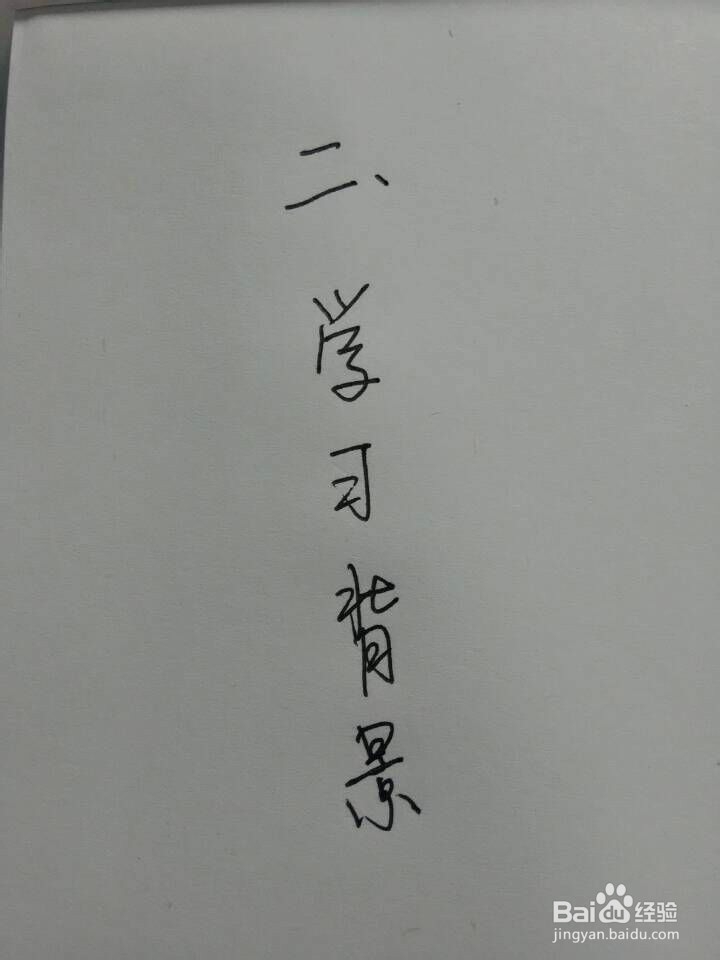 二、学习背景
Baidu经验
jingyan.baidu.com